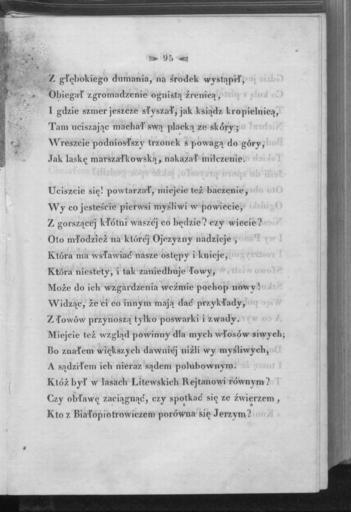 95
Z głębokiego dumania, na środek wystąpił,
Obiegał zgromadzenie ognistą źrenicą,
I gdzie szmer jeszcze słyszał, jak ksiądz kropielnicą,
Tam uciszając machał swą placką ze skóry;
Wreszcie podniosłszy trzonek s powagą do góry,
Jak laskę marszałkowską, nakazał milczenie.
Uciszcie się! powtarzał, miejcie też baczenie,
Wy co jesteście pierwsi myśliwi w powiecie,
Z gorszącej kłótni waszéj co będzie? czy wiecie?
Oto młodzież na któréj Ojczyzny nadzieje,
Która ma wsławiać nasze ostępy i knieje,
Która niestety, i tak zaniedbuje łowy,
Może do ich wzgardzenia weźmie pochop nowy!
Widząc, że ci co innym mają dać przykłady,
Z łowów przynoszą tylko poswarki i zwady.
Miejcie też wzgląd powinny dla mych włosów siwych;
Bo znałem większych dawniéj niżli wy myśliwych,
A sądziłem ich nieraz sądem polubownym.
Któż był w lasach Litewskich Rejtanowi równym?
Czy obławę zaciągnąć, czy spotkać się ze źwierzem,
Kto z Białopiotrowiczem porówna się Jerzym?